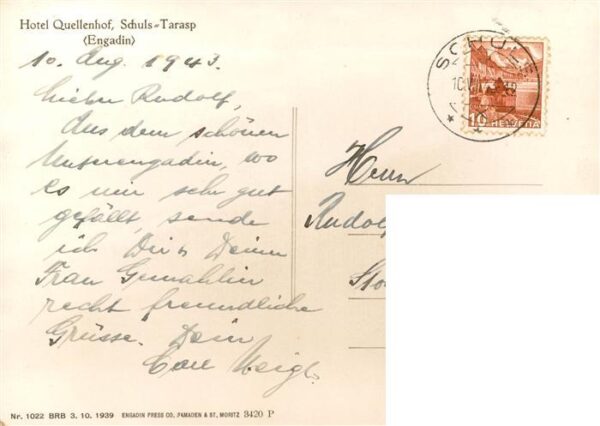 Hotel Quellenhof, Schuls-Tarasp
(Engadin)
10. Aug. 1943.
Lieber Rudolf,
Aus dem schönen
Unterengadin, wo
es mir sehr gut
gefällt, sende
ich Dir & Deiner
Frau Gemahlin
recht freundliche
Grüsse. Dein
Carl
Herrn
Rudolf
SCHULS
10
HELVETIA
Nr. 1022 BRB 3. 10. 1939 ENGADIN PRESS CO, SAMADEN & ST. MORITZ 3420 P